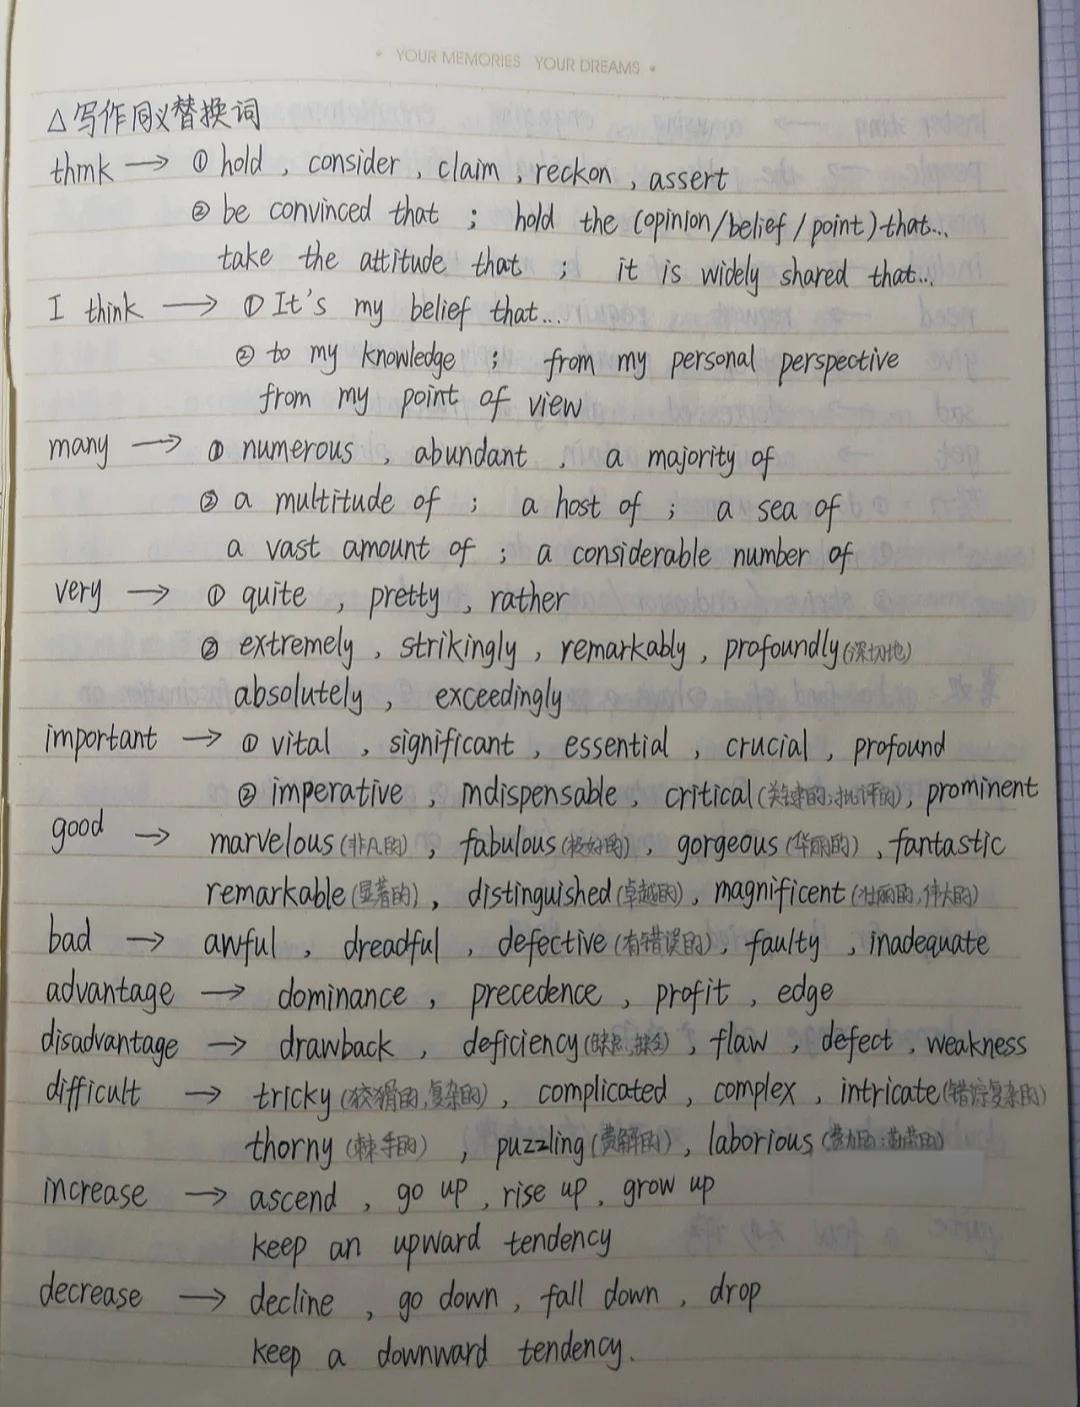 YOUR MEMORIES YOUR DREAMS
△写作同义替换词
thmk → ① hold , consider , claim , reckon , assert
② be convinced that ; hold the (opinion/belief/point) that...
take the attitude that ; it is widely shared that...
I think → ① It's my belief that...
② to my knowledge ; from my personal perspective
from my point of view
many → ① numerous , abundant , a majority of
② a multitude of ; a host of ; a sea of
a vast amount of ; a considerable number of
very → ① quite , pretty , rather
② extremely , strikingly , remarkably , profoundly(深切地)
absolutely , exceedingly
important → ① vital , significant , essential , crucial , profound
② imperative , mdispensable , critical(关键的;批评的) , prominent
good → marvelous(非凡的) , fabulous(极好的) , gorgeous(华丽的) , fantastic
remarkable(显著的) , distinguished(卓越的) , magnificent(壮丽的,伟大的)
bad → awful , dreadful , defective(有错误的) , faulty , inadequate
advantage → dominance , precedence , profit , edge
disadvantage → drawback , deficiency(缺点,缺乏) , flaw , defect , weakness
difficult → tricky(狡猾的,复杂的) , complicated , complex , intricate(错综复杂的)
thorny(棘手的) , puzzling(费解的) , laborious
increase → ascend , go up , rise up , grow up
keep an upward tendency
decrease → decline , go down , fall down , drop
keep a downward tendency.